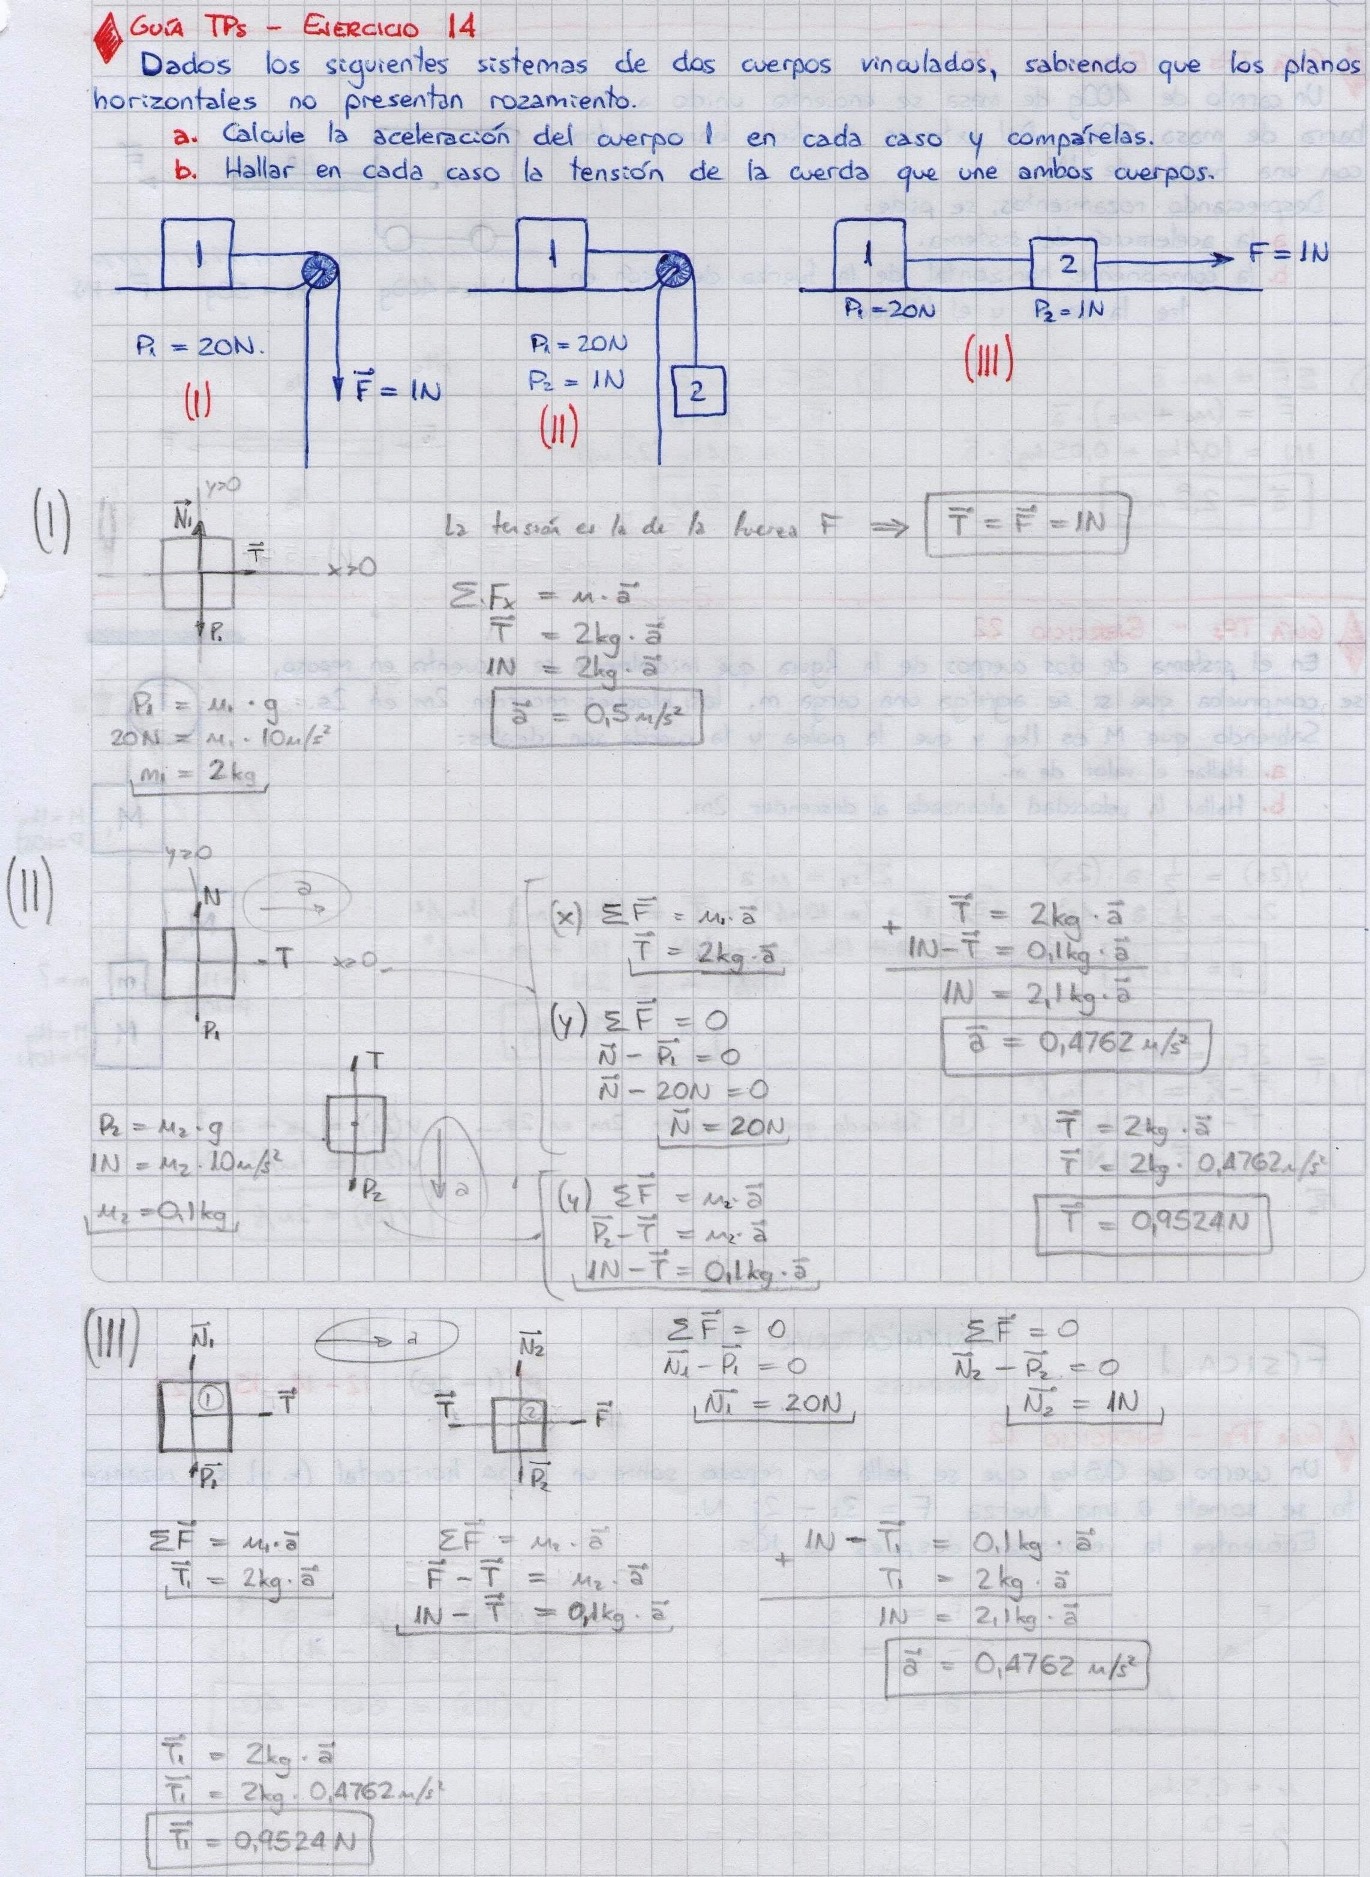 GUÍA TPs - EJERCICIO 14
Dados los siguientes sistemas de dos cuerpos vinculados, sabiendo que los planos
horizontales no presentan rozamiento.
a. Calcule la aceleración del cuerpo 1 en cada caso y compárelas.
b. Hallar en cada caso la tensión de la cuerda que une ambos cuerpos.
1
P₁ = 20N.
(I)
F⃗ = 1N
1
P₁ = 20N
P₂ = 1N
(II)
2
1
2
F = 1N
P₁ = 20N
P₂ = 1N
(III)
(I)
y>0
N⃗₁
T⃗
x>0
P₁
La tensión es la de la fuerza F ⇒ T⃗ = F⃗ = 1N
Σ Fx = m · a⃗
T⃗ = 2kg · a⃗
1N = 2kg · a⃗
a⃗ = 0,5 m/s²
P₁ = m₁ · g
20N = m₁ · 10m/s²
m₁ = 2kg
(II)
y>0
N
a⃗
T
x>0
P₁
T
P₂
a
P₂ = m₂ · g
1N = m₂ · 10m/s²
m₂ = 0,1kg
(x) Σ F⃗ = m₁ · a⃗
T⃗ = 2kg · a⃗
(y) Σ F⃗ = 0
N⃗ - P⃗₁ = 0
N⃗ - 20N = 0
N⃗ = 20N
(y) Σ F⃗ = m₂ · a⃗
P⃗₂ - T⃗ = m₂ · a⃗
1N - T⃗ = 0,1kg · a⃗
+ T⃗ = 2kg · a⃗
1N - T⃗ = 0,1kg · a⃗
1N = 2,1kg · a⃗
a⃗ = 0,4762 m/s²
T⃗ = 2kg · a⃗
T⃗ = 2kg · 0,4762 m/s²
T⃗ = 0,9524N
(III)
N⃗₁
1
T⃗
P⃗₁
a
N⃗₂
T⃗
2
F⃗
P⃗₂
Σ F⃗ = 0
N⃗₁ - P⃗₁ = 0
N⃗₁ = 20N
Σ F⃗ = 0
N⃗₂ - P⃗₂ = 0
N⃗₂ = 1N
Σ F⃗ = m₁ · a⃗
T⃗₁ = 2kg · a⃗
Σ F⃗ = m₂ · a⃗
F⃗ - T⃗ = m₂ · a⃗
1N - T⃗ = 0,1kg · a⃗
+ 1N - T⃗₁ = 0,1kg · a⃗
T₁ = 2kg · a⃗
1N = 2,1kg · a⃗
a⃗ = 0,4762 m/s²
T⃗₁ = 2kg · a⃗
T⃗₁ = 2kg · 0,4762 m/s²
T⃗₁ = 0,9524N